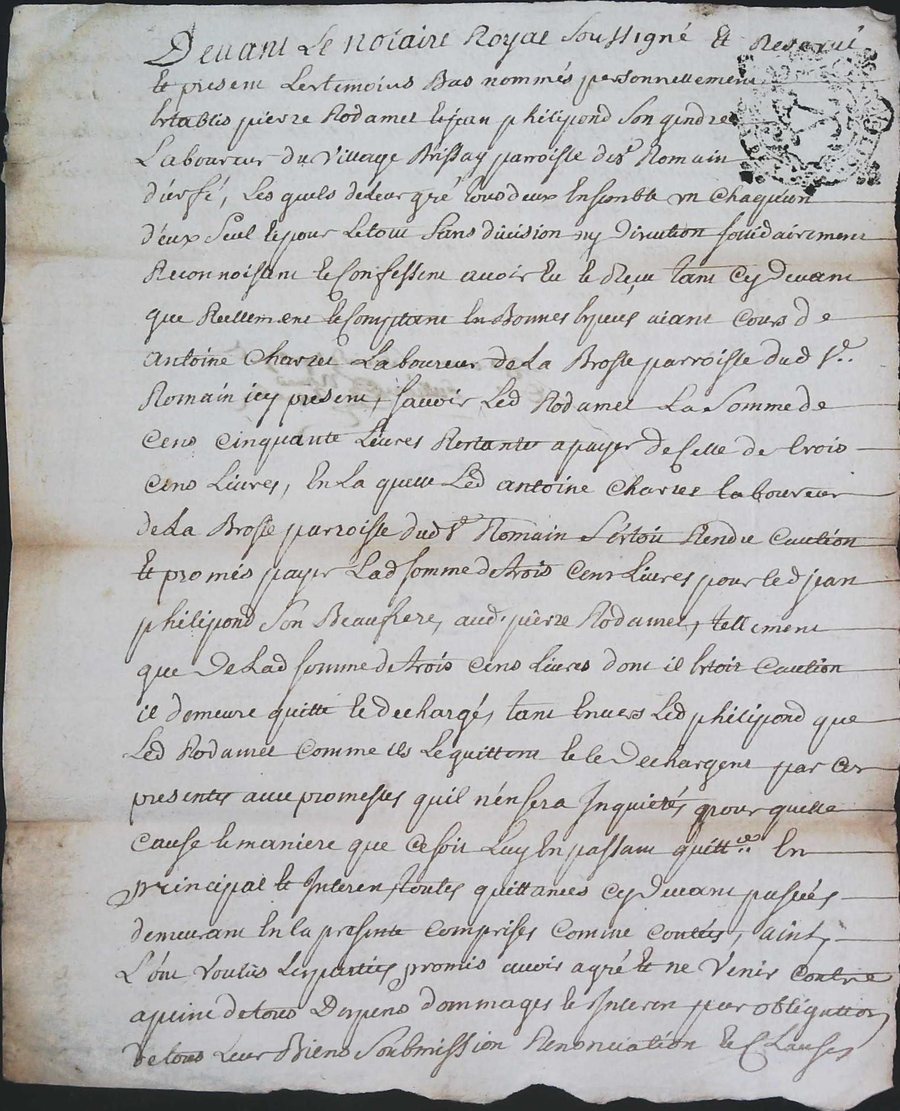 Devant Le Notaire Royal Soussigné Et Reservé
Et present Les temoins Bas nommés personnellement
Establis pierre Rodamel Et jean philipond Son gendre
Laboureur du Village Brissay parroisse de st Romain
d'urfé, Les quels de leur gré tous deux Ensemble un Chaqu'un
d'eux Seul Et pour Le tout Sans division ny Solidairement
Reconnoissent Et Confessent avoir Eu Et Reçu tant Cy Devant
que Reellement Et Comptant En Bonnes Especes aiant Cours de
Antoine Charret Laboureur de La Brosse parroisse dud. st.
Romain icy present, Sauoir Led Rodamel La Somme de
Cens Cinquante Livres Restante a payer de Celle de trois
Cens Livres, En La quelle Led antoine Charret laboureur
de La Brosse parroisse dud st Romain S'étoit Rendu Caution
Et promis payer Lad Somme de trois Cens Livres pour led jean
philipond Son Beaufrere, aud. pierre Rodamel, tellement
que De Lad Somme de trois Cens Livres dont il Etoit Caution
il demeure quitte Et dechargé, tant Envers Led philipond que
Led Rodamel Comme ils Le quittent Et le Dechargent par Ces
presentes avec promesses quil n'en sera Inquietés pour quelle
Cause Et maniere que Ce soit Luy En passant quittces En
principal Et Interest, toutes quittances Cy Devant passées
demeurant En la presente Comprises Comme
L'ont Voulus Les parties promis avoir agré Et ne Venir Contre
a peine de tous Depens dommages Et Interest par obligation
De tous Leur Biens Soubmission Renonciation Et Clauses